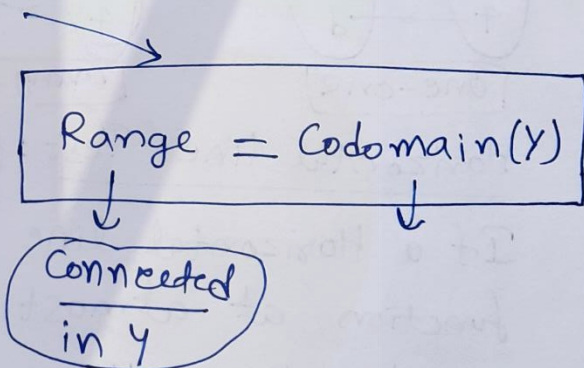 Range = Codomain(Y)
Connected
in Y